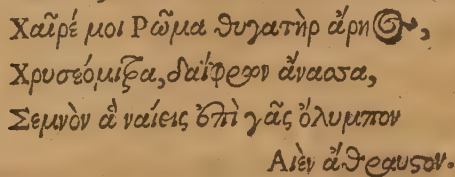 Χαῖρέ μοι Ρῶμα θυγατὴρ ἄρηος,
Χρυσεόμιτρα, δαΐφρον ἄνασσα,
Σεμνὸν ἃ ναίεις ἐπὶ γᾶς ὄλυμπον
Αιὲν ἄθραυστον.